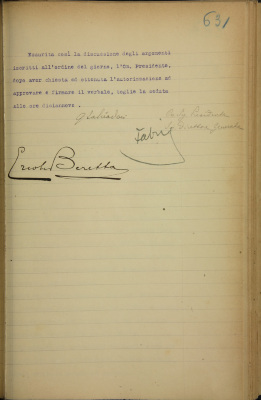 631
Esaurita così la discussione degli argomenti
inscritti all'ordine del giorno, l'On. Presidente,
dopo aver chiesto ed ottenuta l'autorizzazione ad
approvare e firmare il verbale, toglie la seduta
alle ore diciannove.
Fabri
Beretta